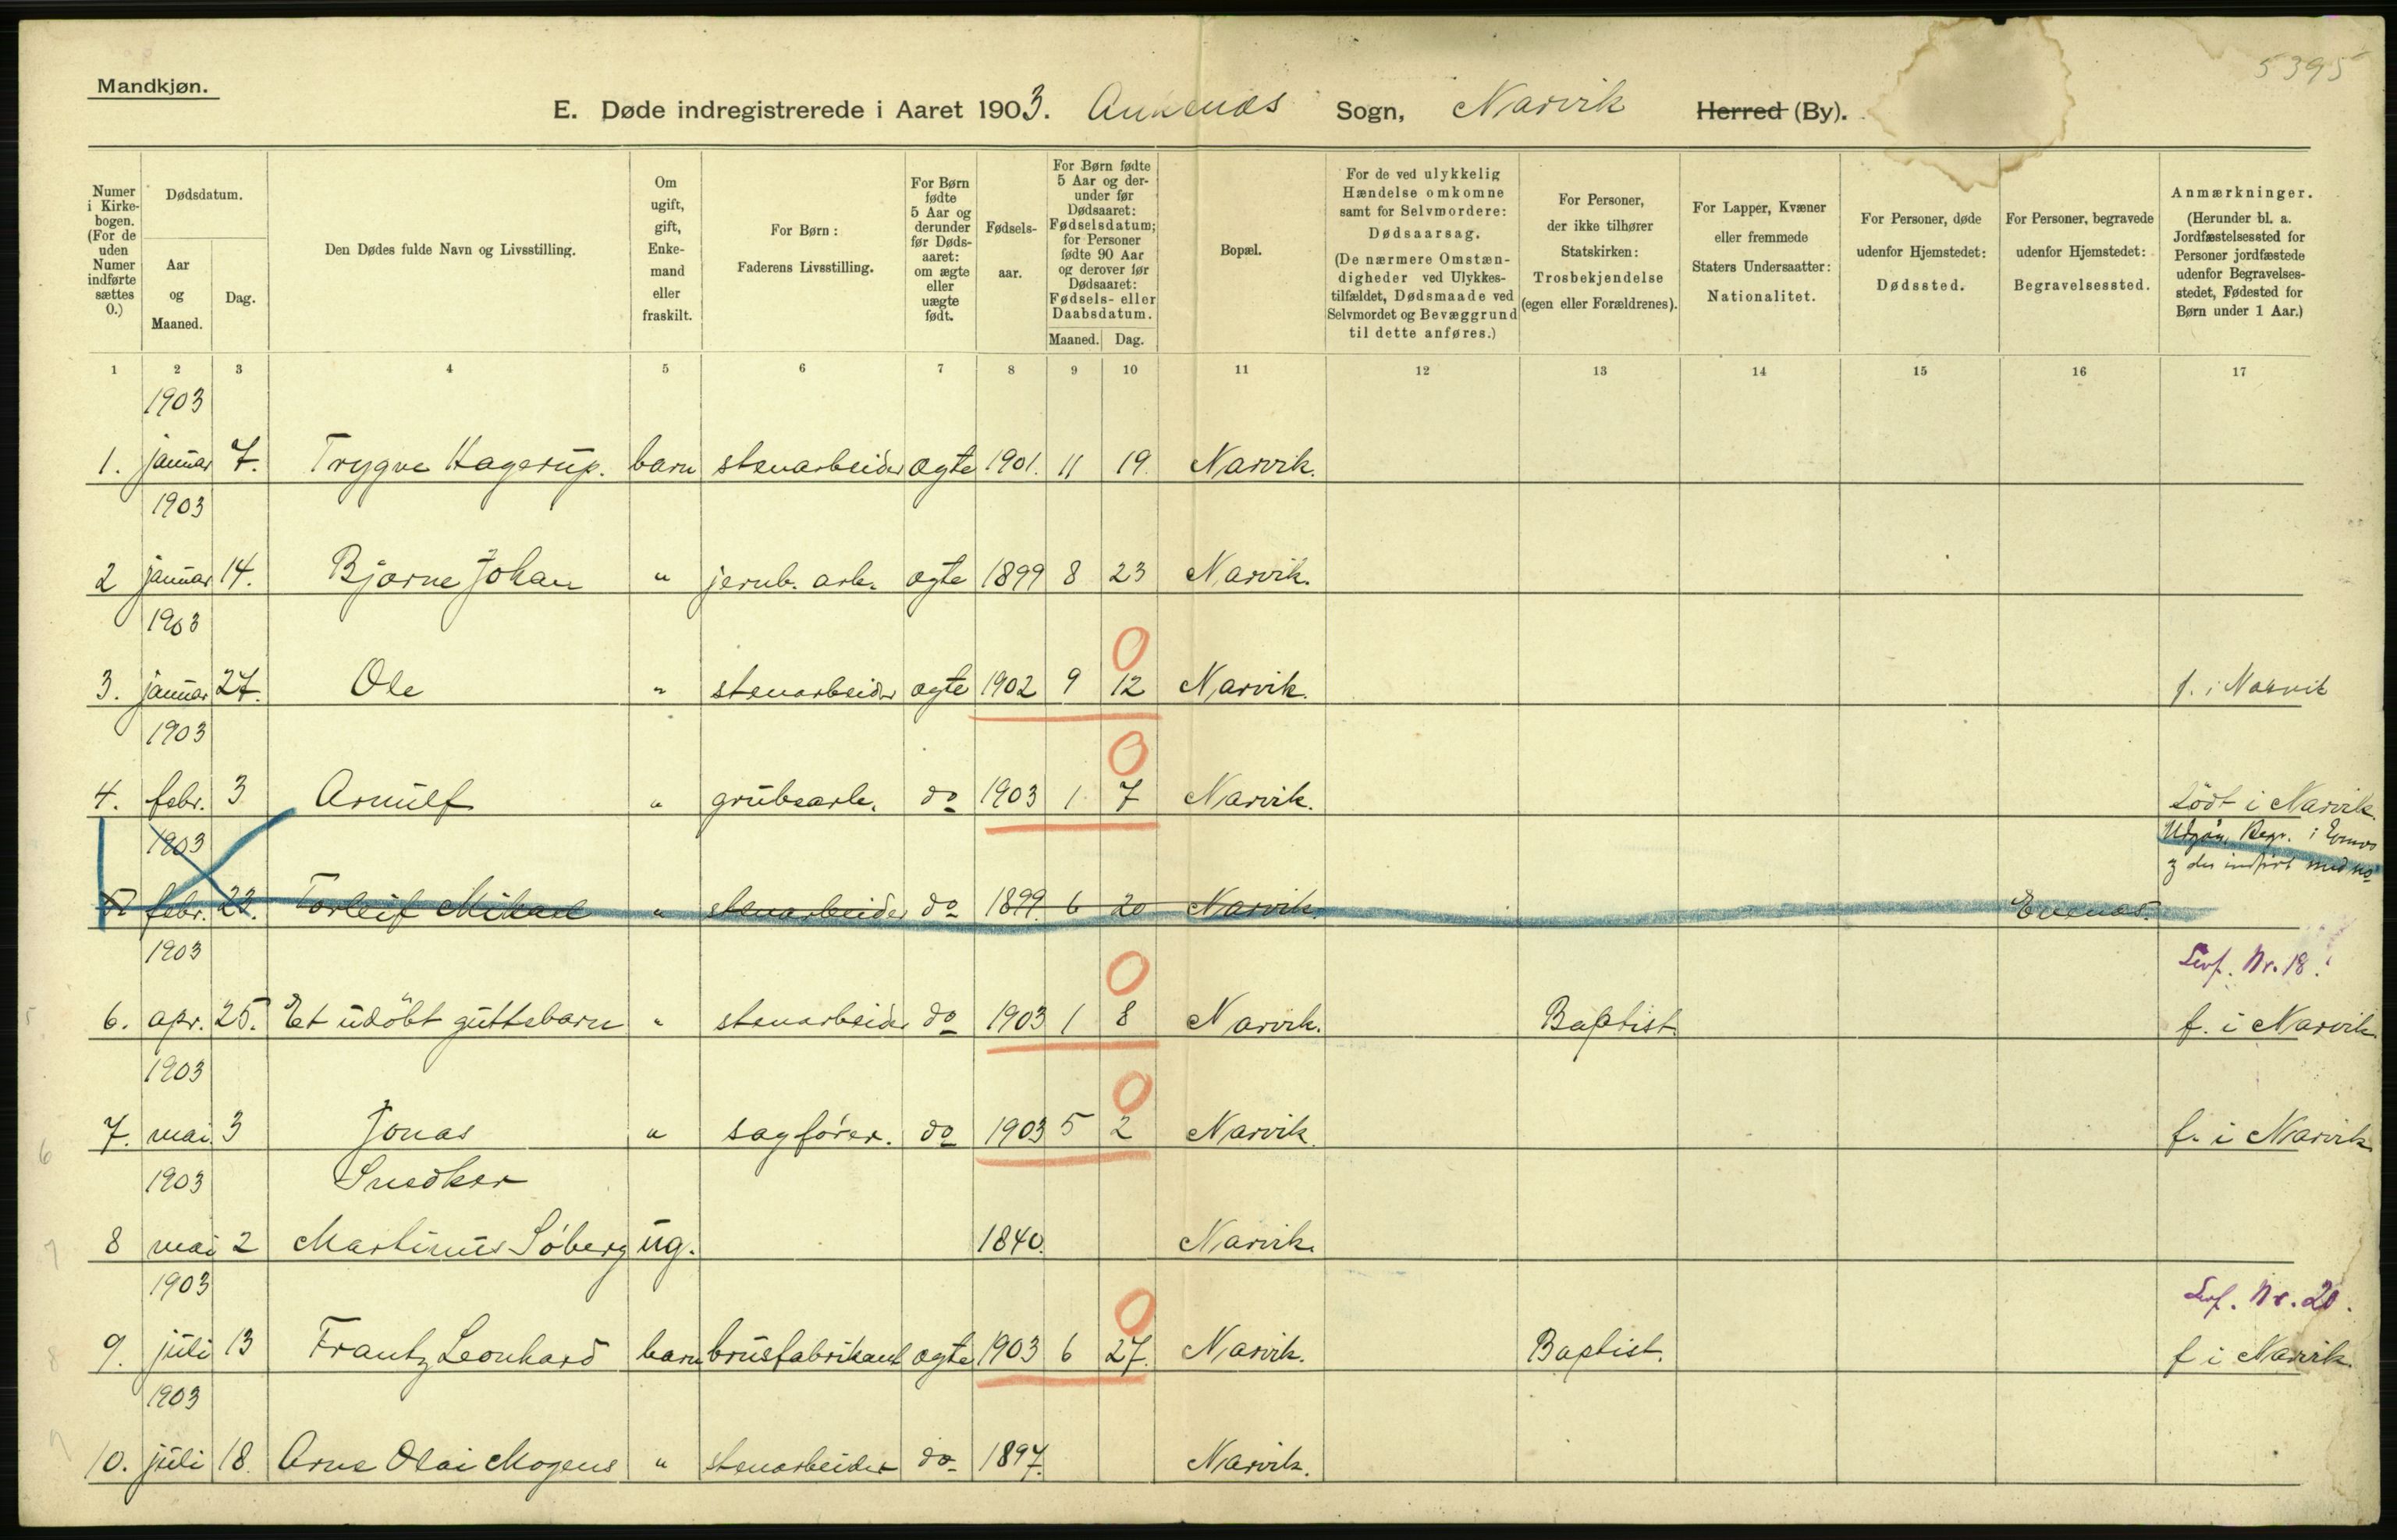 5395
Mandkjøn.
E. Døde indregistrerede i Aaret 1903. Ankenæs Sogn, Narvik Herred (By).
Numer i Kirkebogen. (For de uden Numer indførte sættes 0.)
Dødsdatum.
Aar og Maaned.
Dag.
Den Dødes fulde Navn og Livsstilling.
Om ugift, gift, Enkemand eller fraskilt.
For Børn: Faderens Livsstilling.
For Børn fødte 5 Aar og derunder før Dødsaaret: om ægte eller uægte født.
Fødselsaar.
For Børn fødte 5 Aar og derunder før Dødsaaret: Fødselsdatum; for Personer fødte 90 Aar og derover før Dødsaaret: Fødsels- eller Daabsdatum.
Maaned. Dag.
Bopæl.
For de ved ulykkelig Hændelse omkomne samt for Selvmordere: Dødsaarsag. (De nærmere Omstændigheder ved Ulykkestilfældet, Dødsmaade ved Selvmordet og Bevæggrund til dette anføres.)
For Personer, der ikke tilhører Statskirken: Trosbekjendelse (egen eller Forældrenes).
For Lapper, Kvæner eller fremmede Staters Undersaatter: Nationalitet.
For Personer, døde udenfor Hjemstedet: Dødssted.
For Personer, begravede udenfor Hjemstedet: Begravelsessted.
Anmærkninger. (Herunder bl. a. Jordfæstelsessted for Personer jordfæstede udenfor Begravelsesstedet, Fødested for Børn under 1 Aar.)
1 2 3 4 5 6 7 8 9 10 11 12 13 14 15 16 17
1903
1. januar 7. Trygve Hagerup. barn stenarbeider ægte 1901. 11 19. Narvik.
1903
2 januar 14. Bjarne Johan " jernb. arb. ægte 1899 8 23 Narvik.
1903
0
3. januar 27. Ole " stenarbeider ægte 1902 9 12 Narvik. f. i Narvik
1903
0
4. febr. 3 Arnulf " grubearb. do 1903 1 7 Narvik. Född i Narvik.
1903 Udgår, Begr. i
5 febr. 22. Torleif Mikael " stenarbeider do 1899. 6 20 Narvik. Evenæs.
1903
0 Nr. 18.
6. apr. 25. Et udöbt guttebarn " stenarbeider do 1903 1 8 Narvik. Baptist. f. i Narvik.
5
1903
0
7. mai 3 Jonas " sagförer. do 1903 5 2 Narvik. f. i Narvik
6
1903 Snedker
8 mai 2 Martinus Söberg ug. 1840. Narvik.
7
1903
0 Nr. 20.
9. juli 13 Frantz Leonhard barn brusfabrikant ægte 1903 6 27. Narvik. Baptist. f i Narvik.
8
1903
10. juli 18. Arne Olai Mogens " stenarbeider do 1897. Narvik.
9